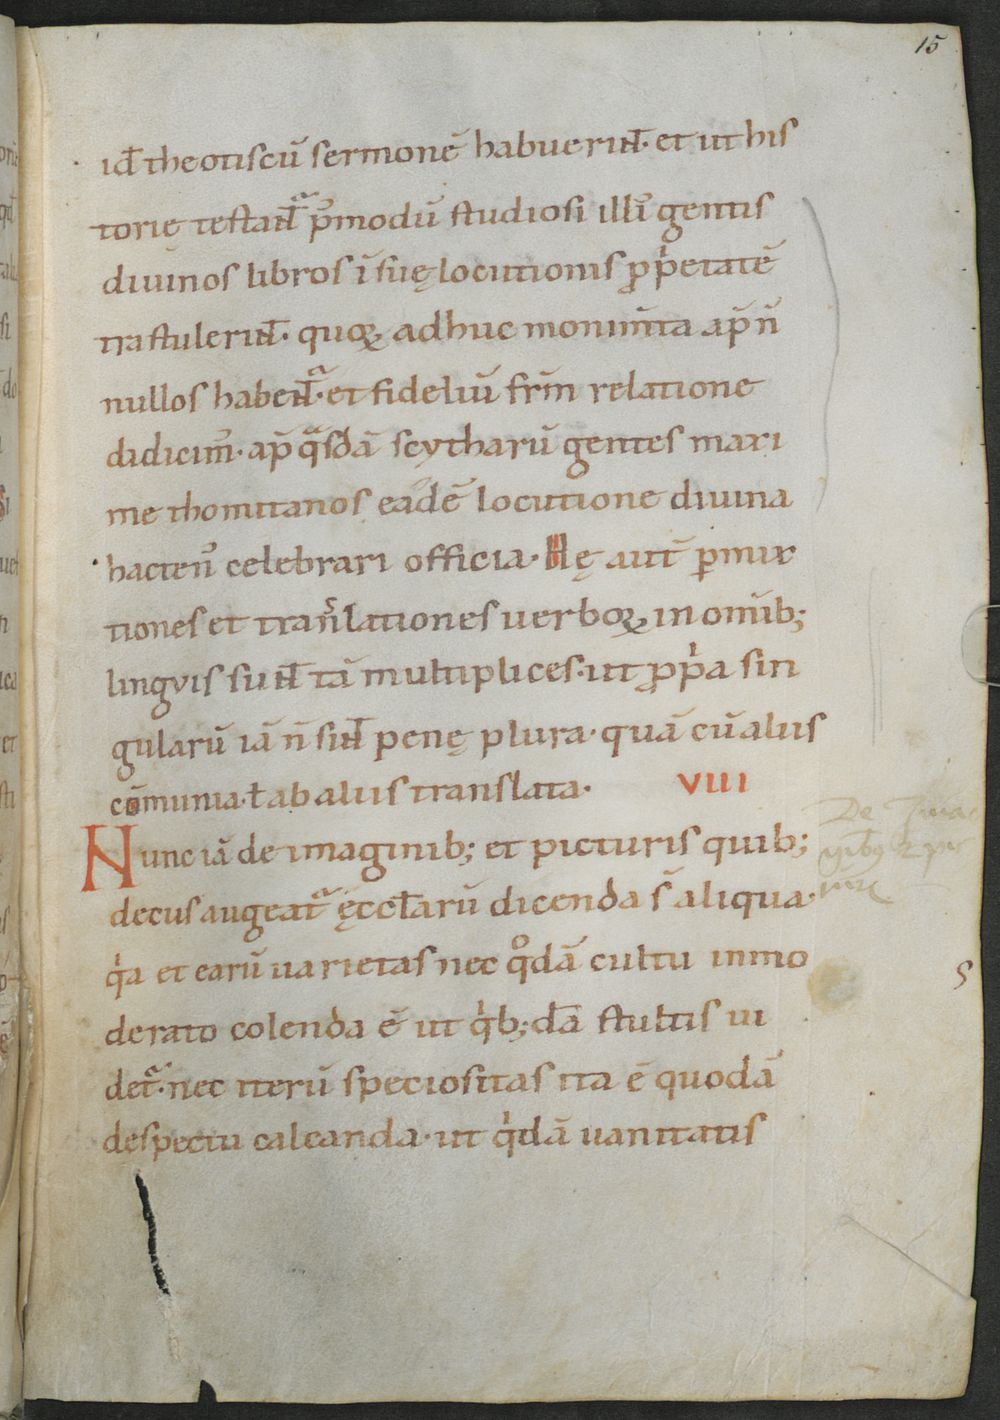 15
id̄ theotiscū sermonē habuerın̄t· et ut his
torię testanᷓt ꝑmodū studiosi illi᾽ gentis
diuinos libros ī suę locutionis ꝓpͥetatē
trāstulerun̄t· quoꝝ adhuc monumt̄a ap̄ n̄
nullos habenᷓt· et fideliū fr̄m relatione
didicim᾽· ap̄ qᷓsdā scytharū gentes maxi
me thomitanos eadē locutione diuina
hacten᾽ celebrari officia· Hę aut̄ ꝑmix
tiones et translationes uerboꝝ in omīb;
lingvis sun̄t tā multiplices· ut ꝓpͥa sin
gularū iā n̄ sin̄t penę plura· quā cū aliis
cōmunia· ł ab aliis translata· VIII
Nunc iā de imaginib; et picturis quib;
decus augeatᷓ ęccłarū dicenda s̄ aliqua·
qͥa et earū uarietas nec qͦdā cultu inmo
derato colenda ē ut qͥb;dā stultis ui
detᷓ· nec iterū speciositas ita ē quodā
despectu calcanda· ut qͥdā uanitatis
De Imag
nib᾽ & pic
turis